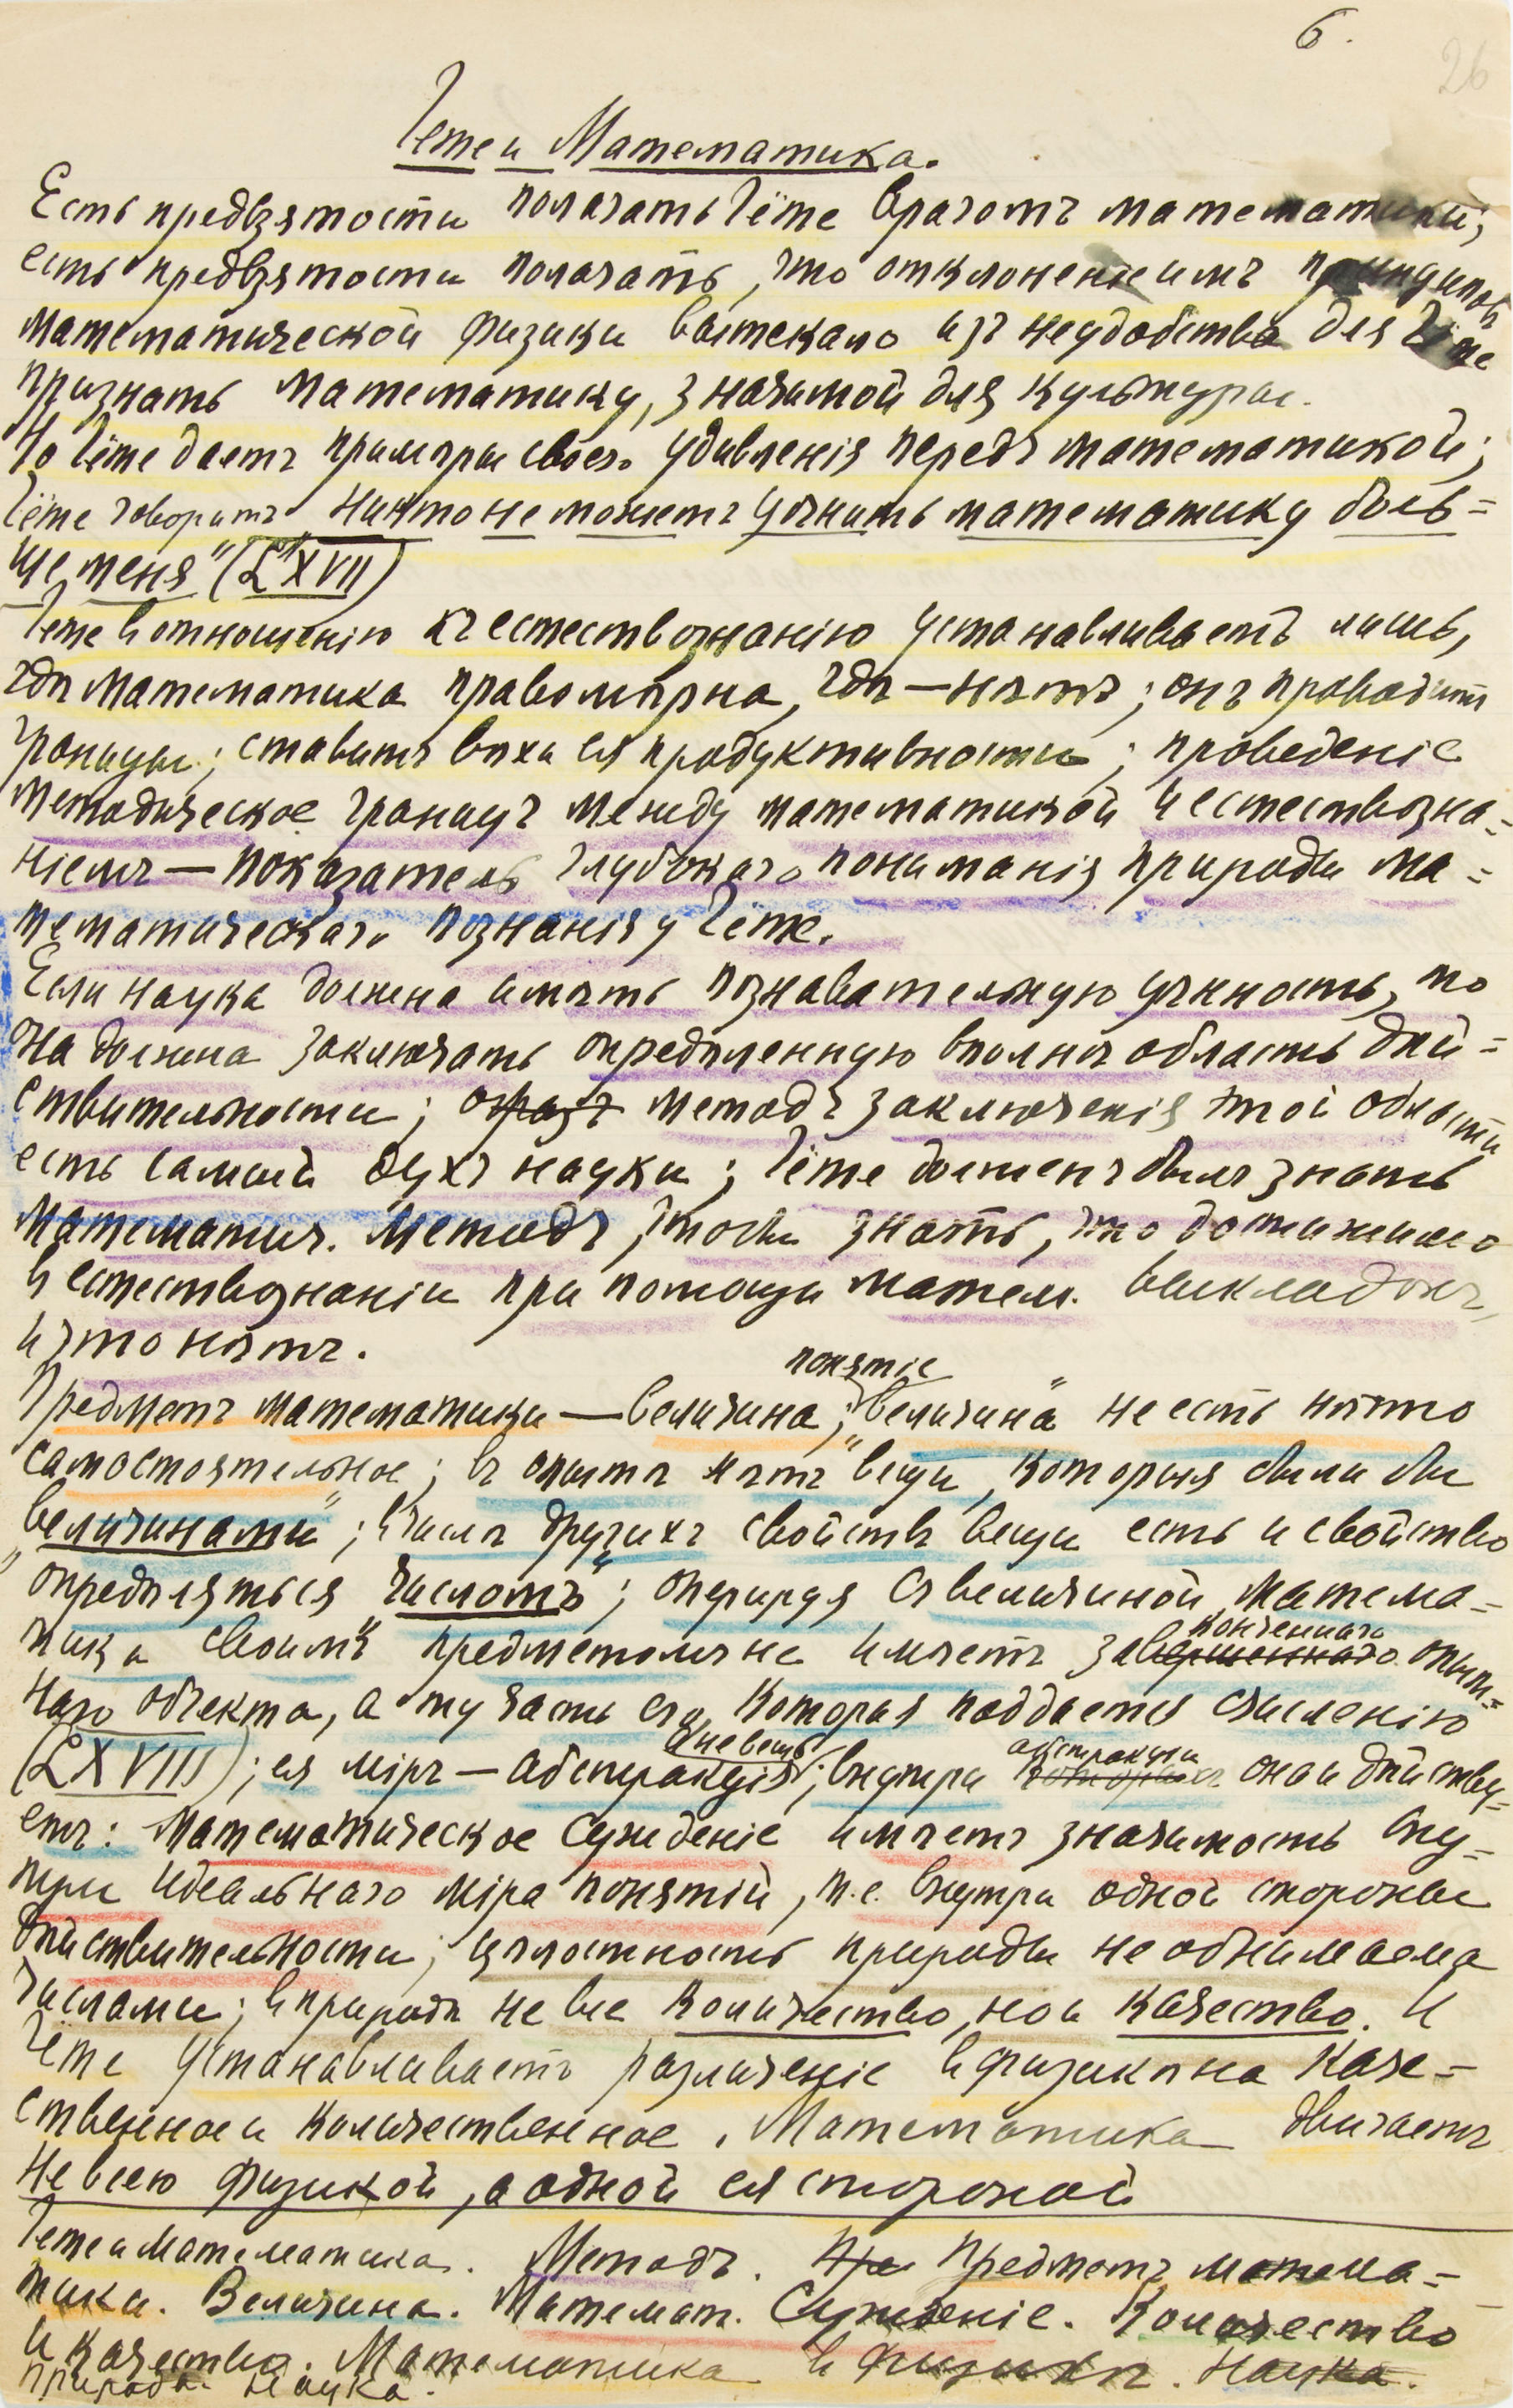 6.
26
Гете и Математика.
Есть предвзятости полагать Гёте врагомъ математики;
есть предвзятости полагать, что отклоненіе имъ принциповъ
математической физики вытекало изъ неудобства для Гёте
признать математику, значимой для культуры.
Но Гёте даетъ примѣры своего удивленія передъ математикой;
Гёте говоритъ „никто не можетъ цѣнить математику боль=
ше меня" (LXVII)
Гете въ отношеніи къ естествознанію устанавливаетъ лишь,
гдѣ математика правомѣрна, гдѣ — нѣтъ; онъ проводитъ
границы; ставитъ вѣхи ея продуктивности; проведеніе
методическое границъ между математикой и естествозна=
ніемъ — показатель глубокаго пониманія природы ма=
тематическаго познанія у Гёте.
Если наука должна имѣть познавательную цѣнность, то
она должна заключать опредѣленную вполнѣ область дѣй=
ствительности; образъ методъ заключенія этой области
есть самый духъ науки; Гёте долженъ былъ знать
математич. методъ, чтобы знать, что достижимо
въ естествознаніи при помощи матем. выкладокъ,
и что нѣтъ.
понятіе
Предметъ математики — величина; „величина" не есть нѣчто
самостоятельное; въ опытѣ нѣтъ вещи, которыя были бы
„величинами"; въ числѣ другихъ свойствъ вещи есть и свойство
опредѣляться „числомъ"; оперируя съ величиной, матема=
конченнаго
тика своимъ предметомъ не имѣетъ завершеннаго опыт=
наго объекта, а ту часть его, которая поддается счисленію
а не вещь абстракціи
(LXVIII); ея міръ — абстракція; внутри которыхъ она и дѣйству=
етъ: математическое сужденіе имѣетъ значимость вну=
три идеальнаго міра понятій, т.е. внутри одной стороны
дѣйствительности; цѣлостность природы не обнимаема
числами; въ природѣ не все количество, но и качество. И
Гете устанавливаетъ различеніе въ физикѣ на каче=
ственное и количественное. Математика двигаетъ
не всею физикой, а одной ея стороной
Гете и математика. Методъ. Пре Предметъ матема=
тики. Величина. Математ. Сужденіе. Количество
и качество. Математика въ физикѣ. Наука.
Природа. Наука.